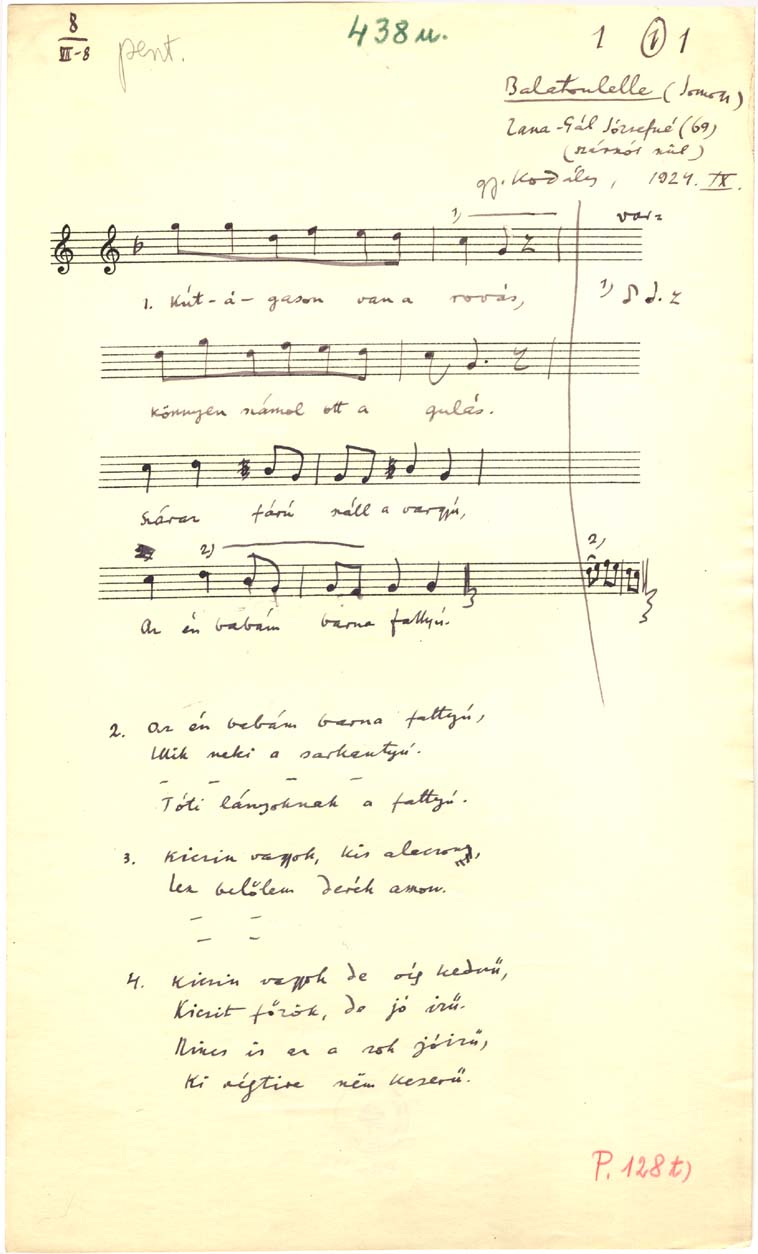 8
VII-8
pent.
438 u.
1 1 1
Balatonlelle (Somogy)
Zana-Gál Józsefné (69)
(szásnói szül)
gy. Kodály, 1924. IX.
1)
var=
1. Kút-á-gason van a rovás,
1)
Könnyen számol ott a gulás.
Száraz fárú száll a vargyú,
2)
2)
Az én babám barna fattyú.
2. Az én babám barna fattyú,
Illik neki a sarkantyú.
– – – –
Tóti lányoknak a fattyú.
3. Kicsin vagyok, kis alacsony,
Lesz belőlem derék asszon.
– –
– –
4. Kicsin vagyok de víg kedvű,
Kicsit főzök, de jó izű.
Nincs is az a sok jóizű,
Ki végtire nëm keserű.
P. 128 t)